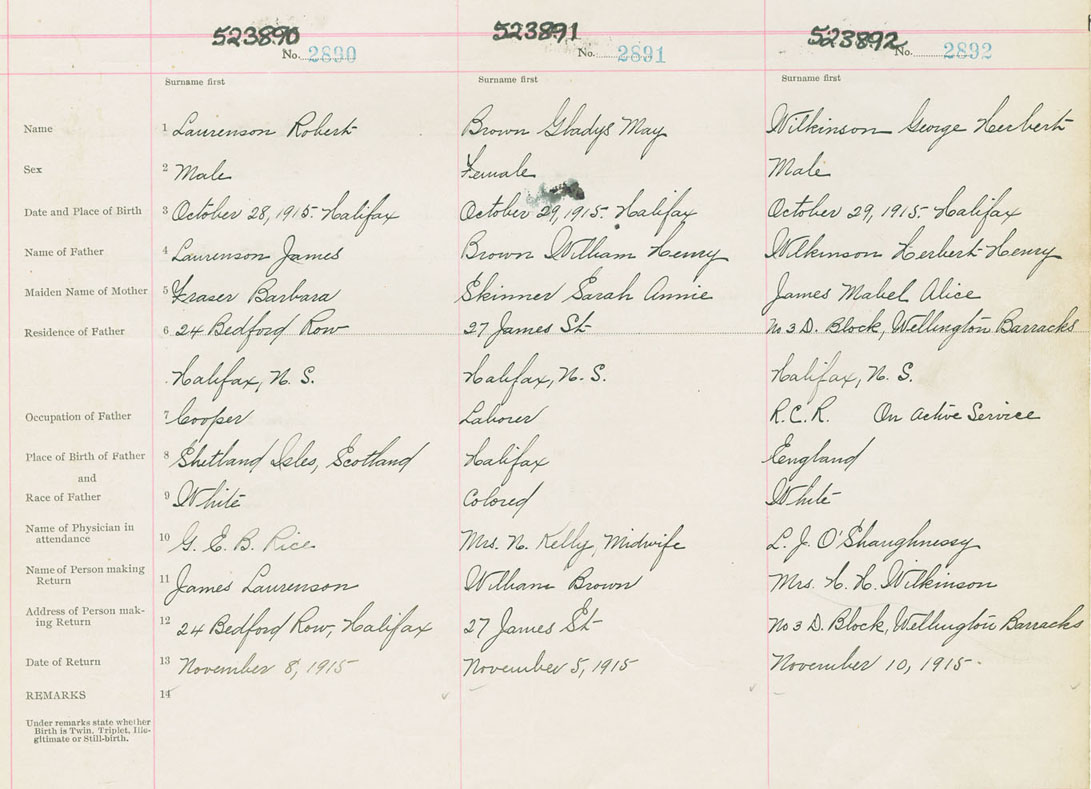 523890 523891 523892
No. 2890 No. 2891 No. 2892
Surname first Surname first Surname first
Name 1 Laurenson Robert Brown Gladys May Wilkinson George Herbert
Sex 2 Male Female Male
Date and Place of Birth 3 October 28, 1915. Halifax October 29, 1915. Halifax October 29, 1915. Halifax
Name of Father 4 Laurenson James Brown William Henry Wilkinson Herbert Henry
Maiden Name of Mother 5 Fraser Barbara Skinner Sarah Annie James Mabel Alice
Residence of Father 6 24 Bedford Row 27 James St No 3 D. Block, Wellington Barracks
Halifax, N. S. Halifax, N. S. Halifax, N. S.
Occupation of Father 7 Cooper Laborer R.C.R. On Active Service
Place of Birth of Father 8 Shetland Isles, Scotland Halifax England
and
Race of Father 9 White Colored White
Name of Physician in
attendance 10 G. E. B. Rice Mrs. N. Kelly, Midwife L. J. O'Shaughnessy
Name of Person making
Return 11 James Laurenson William Brown Mrs. H. H. Wilkinson
Address of Person mak-
ing Return 12 24 Bedford Row, Halifax 27 James St No 3 D. Block, Wellington Barracks
Date of Return 13 November 8, 1915 November 5, 1915 November 10, 1915.
REMARKS 14
Under remarks state whether
Birth is Twin, Triplet, Ille-
gitimate or Still-birth.